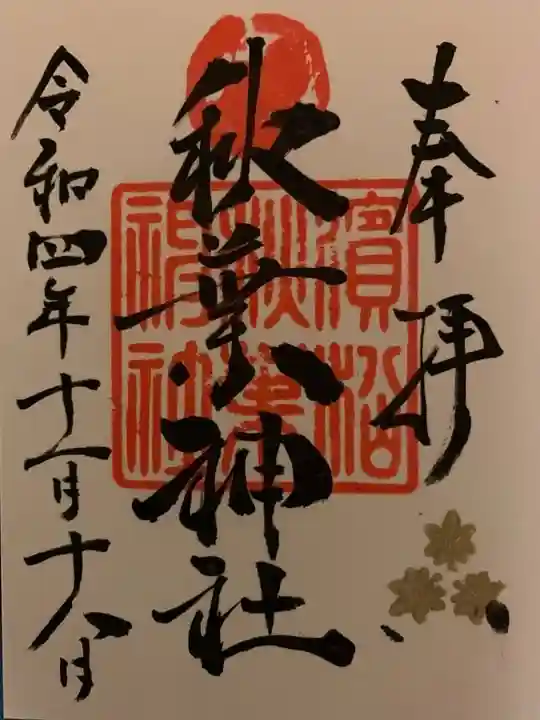 奉拝
秋葉神社
濱松
秋葉
神社
令和四年十一月十八日